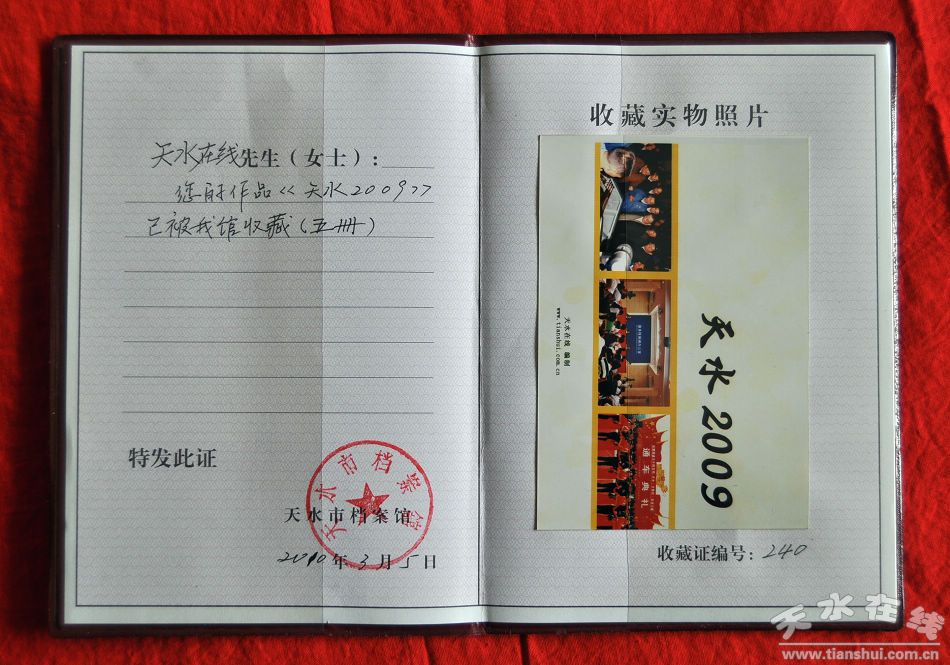 天水在线先生（女士）：
您的作品《天水2009》
已被我馆收藏（五册）
特发此证
天水市档案馆
天水市档案馆
2010年3月5日
收藏实物照片
天水2009
天水在线 编制
www.tianshui.com.cn
通车典礼
收藏证编号：240
天水在线
www.tianshui.com.cn